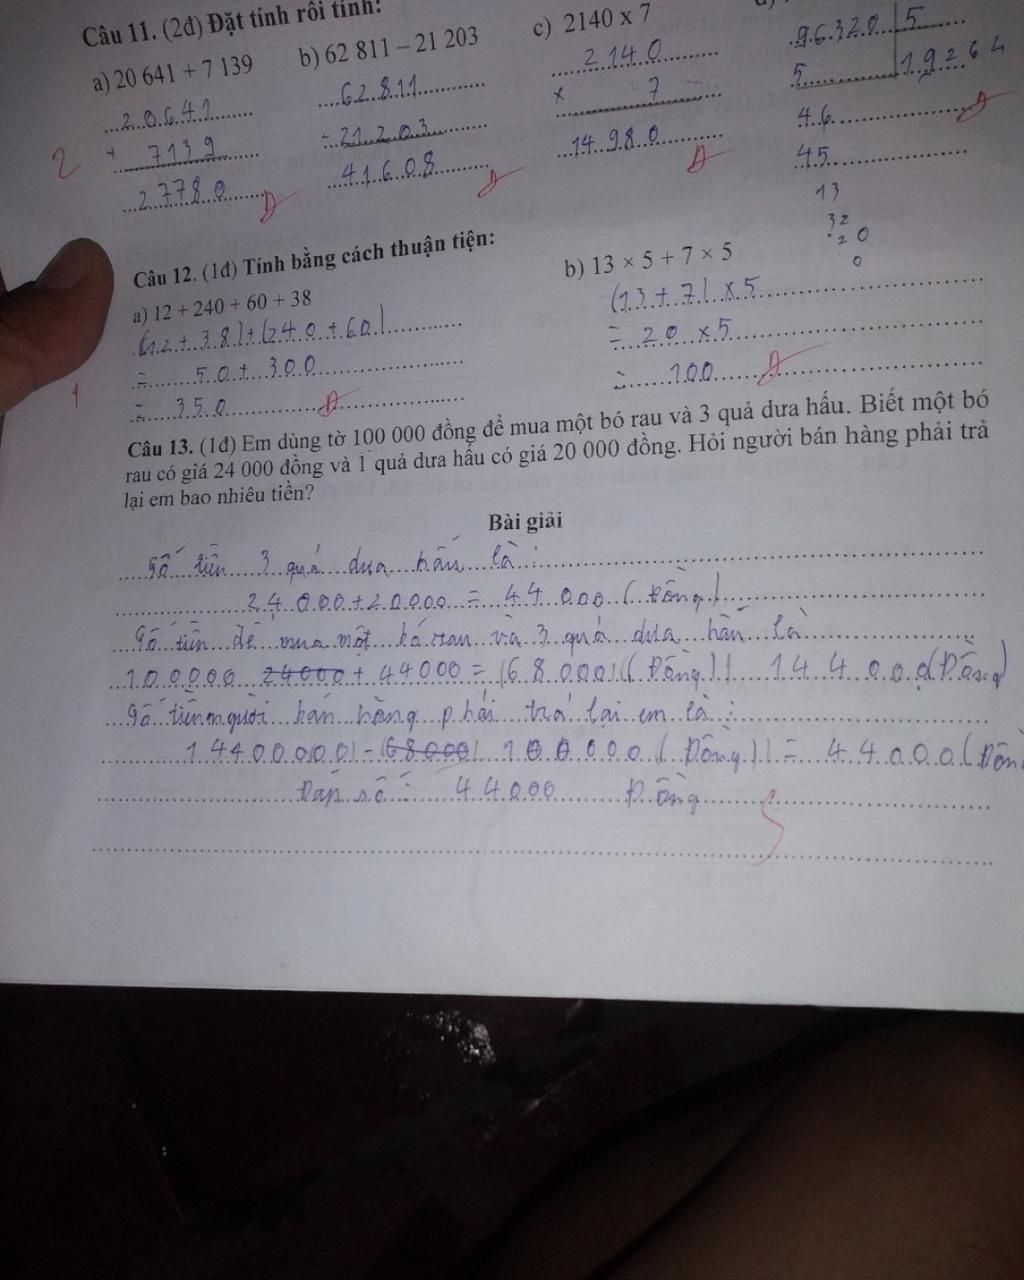 Câu 11. (2đ) Đặt tính rồi tính:
a) 20 641 + 7 139
b) 62 811 – 21 203
c) 2140 x 7
20641
+ 7139
27780
62811
- 21203
41608
2140
x 7
14980
96320 5
5 19264
46
45
13
32
20
0
2
Câu 12. (1đ) Tính bằng cách thuận tiện:
a) 12 + 240 + 60 + 38
(12 + 38) + (240 + 60)
= 50 + 300
= 350
b) 13 × 5 + 7 × 5
(13 + 7) x 5
= 20 x 5
= 100
1
Câu 13. (1đ) Em dùng tờ 100 000 đồng để mua một bó rau và 3 quả dưa hấu. Biết một bó
rau có giá 24 000 đồng và 1 quả dưa hấu có giá 20 000 đồng. Hỏi người bán hàng phải trả
lại em bao nhiêu tiền?
Bài giải
Số tiền 3 quả dưa hấu là :
24 000 + 20000 = 44 000 ( đồng )
Số tiền để mua một bó rau và 3 quả dưa hấn là
100000 24000 + 44000 = (68000) ( Đồng ) 144000 (Đồng)
Số tiền người bán hàng phải trả lại em là :
14400000) - (68000) 100000 ( Đồng ) = 44000 (Đồn
Đáp số : 44000 Đồng